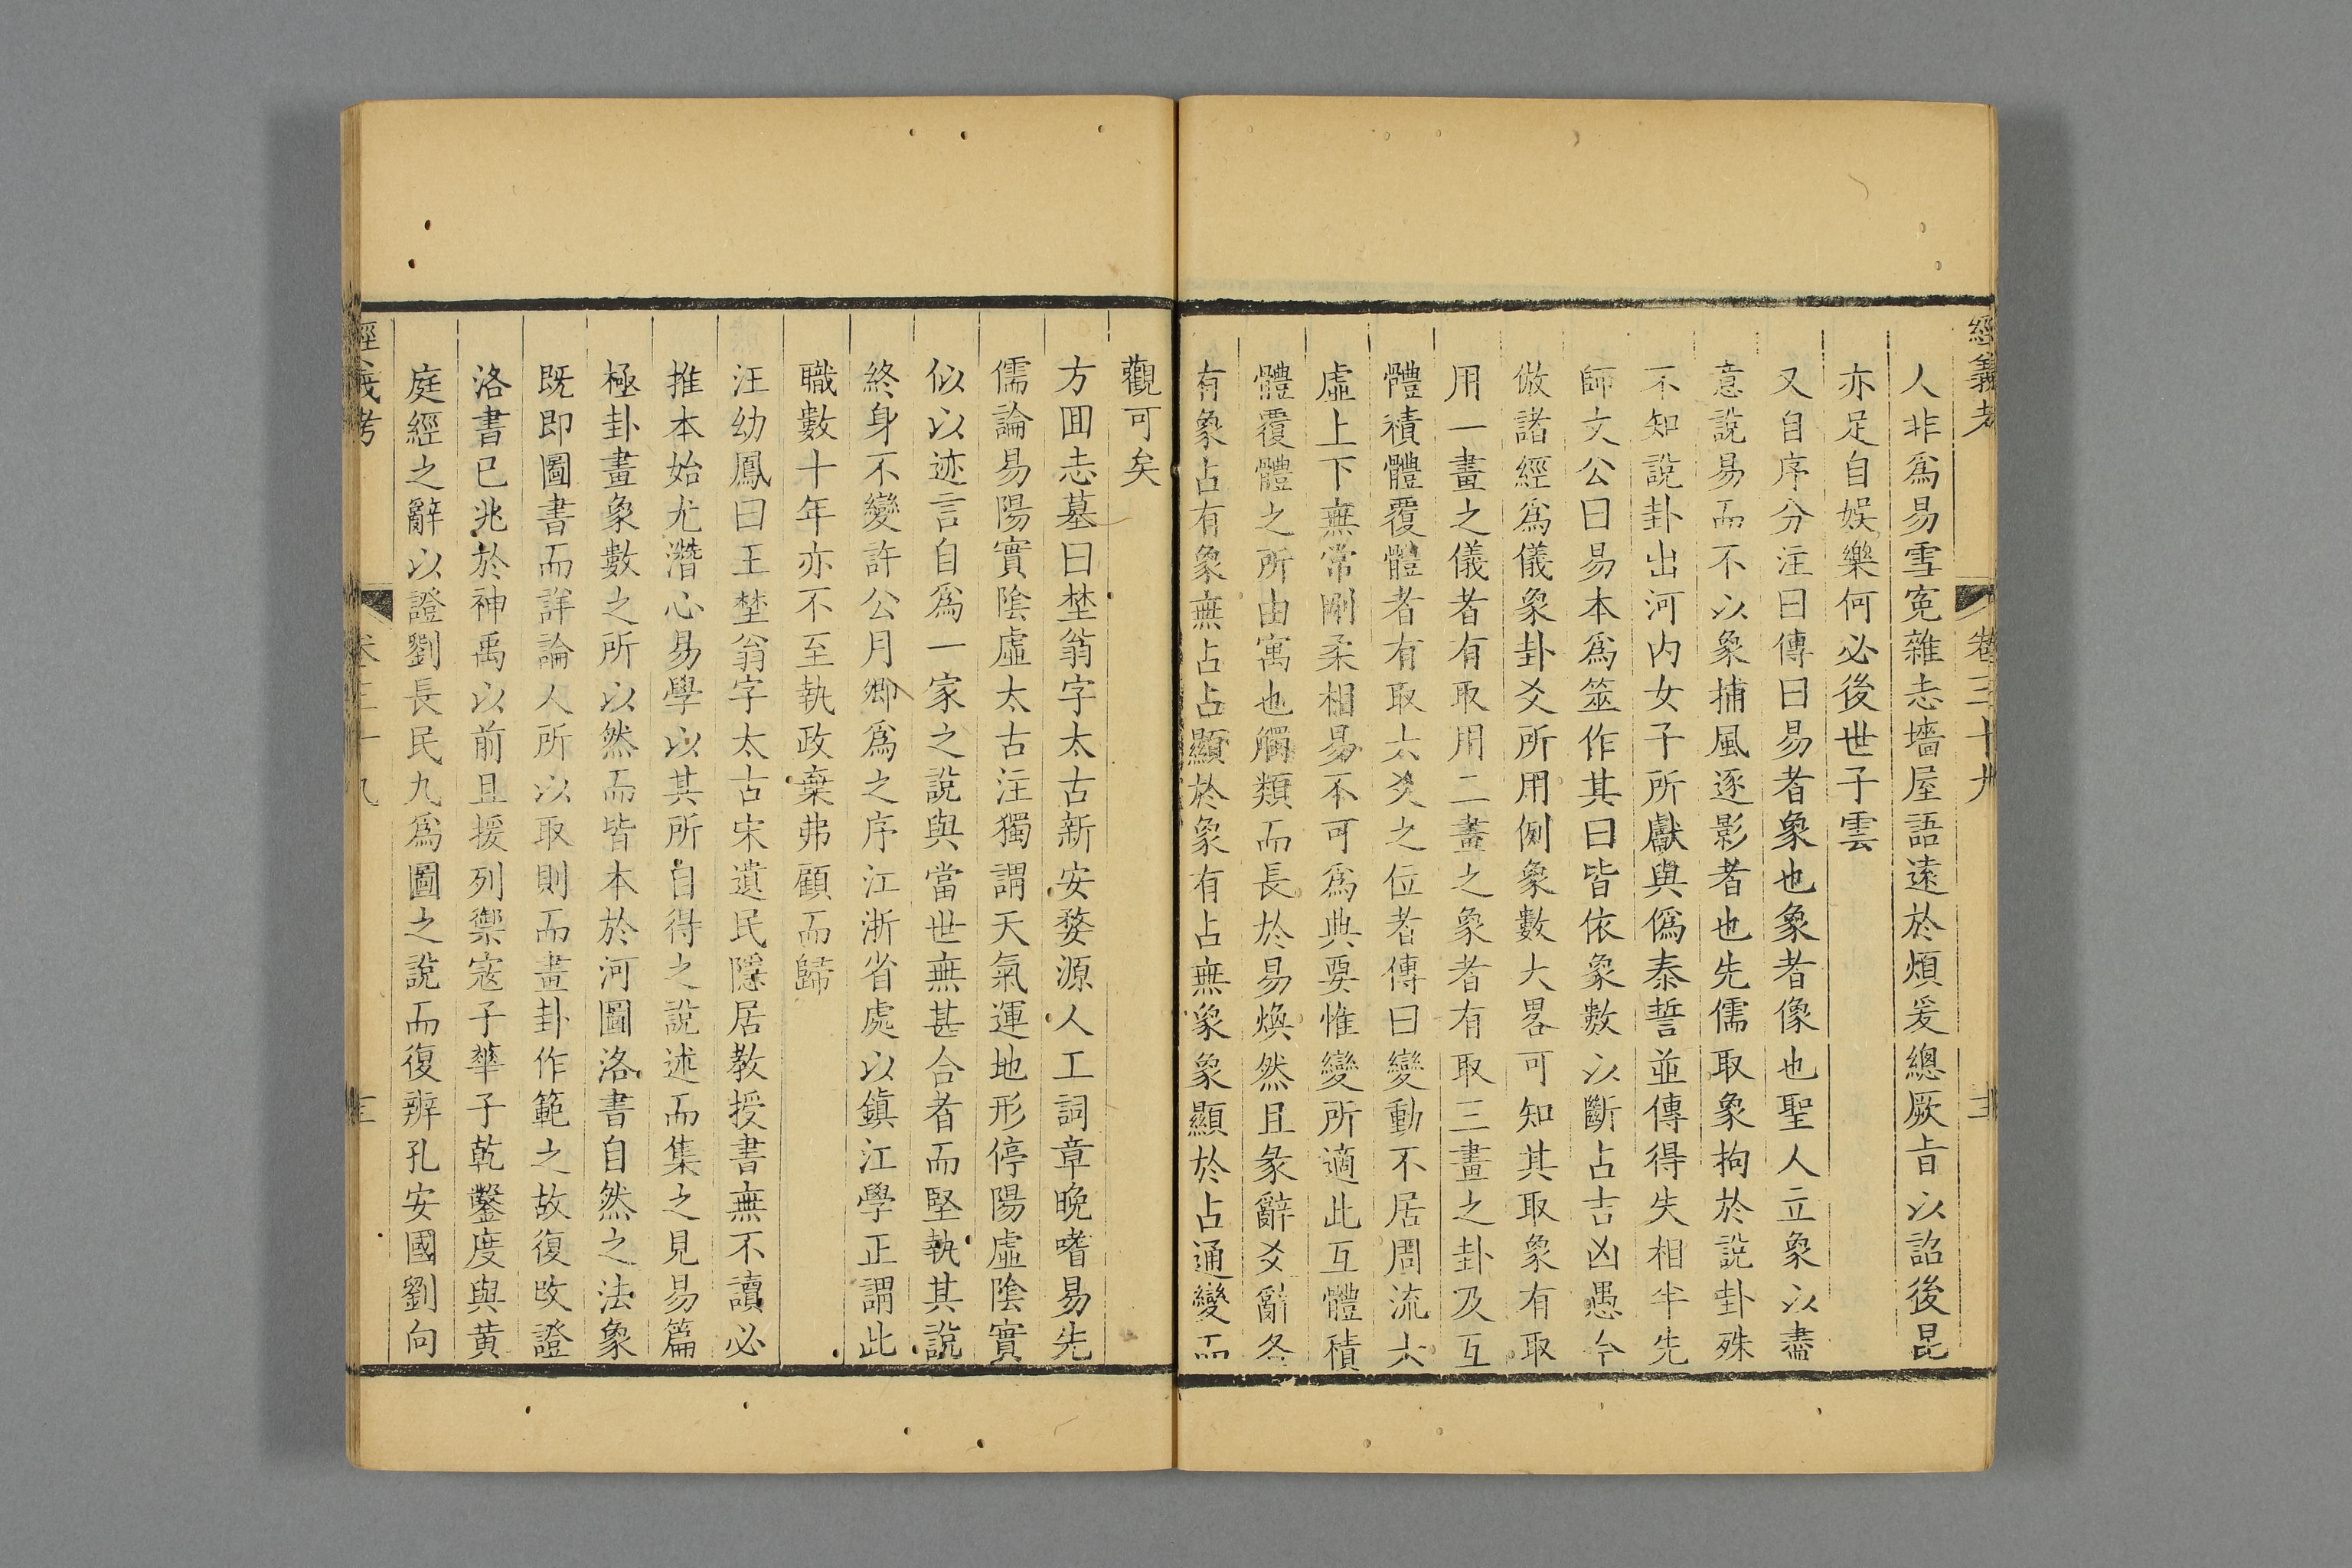 經義考
卷三十九
人非爲易雪寃雜志墻屋語遠於煩爰總厥旨以詔後昆
亦足自娛樂何必後世子雲
又自序分注曰傳曰易者象也象者像也聖人立象以盡
意說易而不以象捕風逐影者也先儒取象拘於說卦殊
不知說卦出河内女子所獻與僞泰誓並傳得失相半先
師文公曰易本爲筮作其曰皆依象數以斷占吉凶愚今
倣諸經爲儀象卦爻所用例象數大畧可知其取象有取
用一畫之儀者有取用二畫之象者有取三畫之卦及互
體積體覆體者有取六爻之位者傳曰變動不居周流六
虛上下無常剛柔相易不可爲典要惟變所適此互體積
體覆體之所由寓也觸類而長於易煥然且彖辭爻辭各
有象占有象無占占顯於象有占無象象顯於占通變而
觀可矣
方回志墓曰埜翁字太古新安婺源人工詞章晚嗜易先
儒論易陽實陰虛太古注獨謂天氣運地形停陽虛陰實
似以迹言自爲一家之說與當世無甚合者而堅執其說
終身不變許公月卿爲之序江浙省處以鎮江學正謂此
職數十年亦不至執政棄弗顧而歸
汪幼鳳曰王埜翁字太古宋遺民隱居教授書無不讀必
推本始尤潛心易學以其所自得之說述而集之見易篇
極卦畫象數之所以然而皆本於河圖洛書自然之法象
既即圖書而詳論人所以取則而畫卦作範之故復攷證
洛書已兆於神禹以前且援列禦寇子華子乾鑿度與黄
庭經之辭以證劉長民九爲圖之說而復辨孔安國劉向
經義考
卷三十九